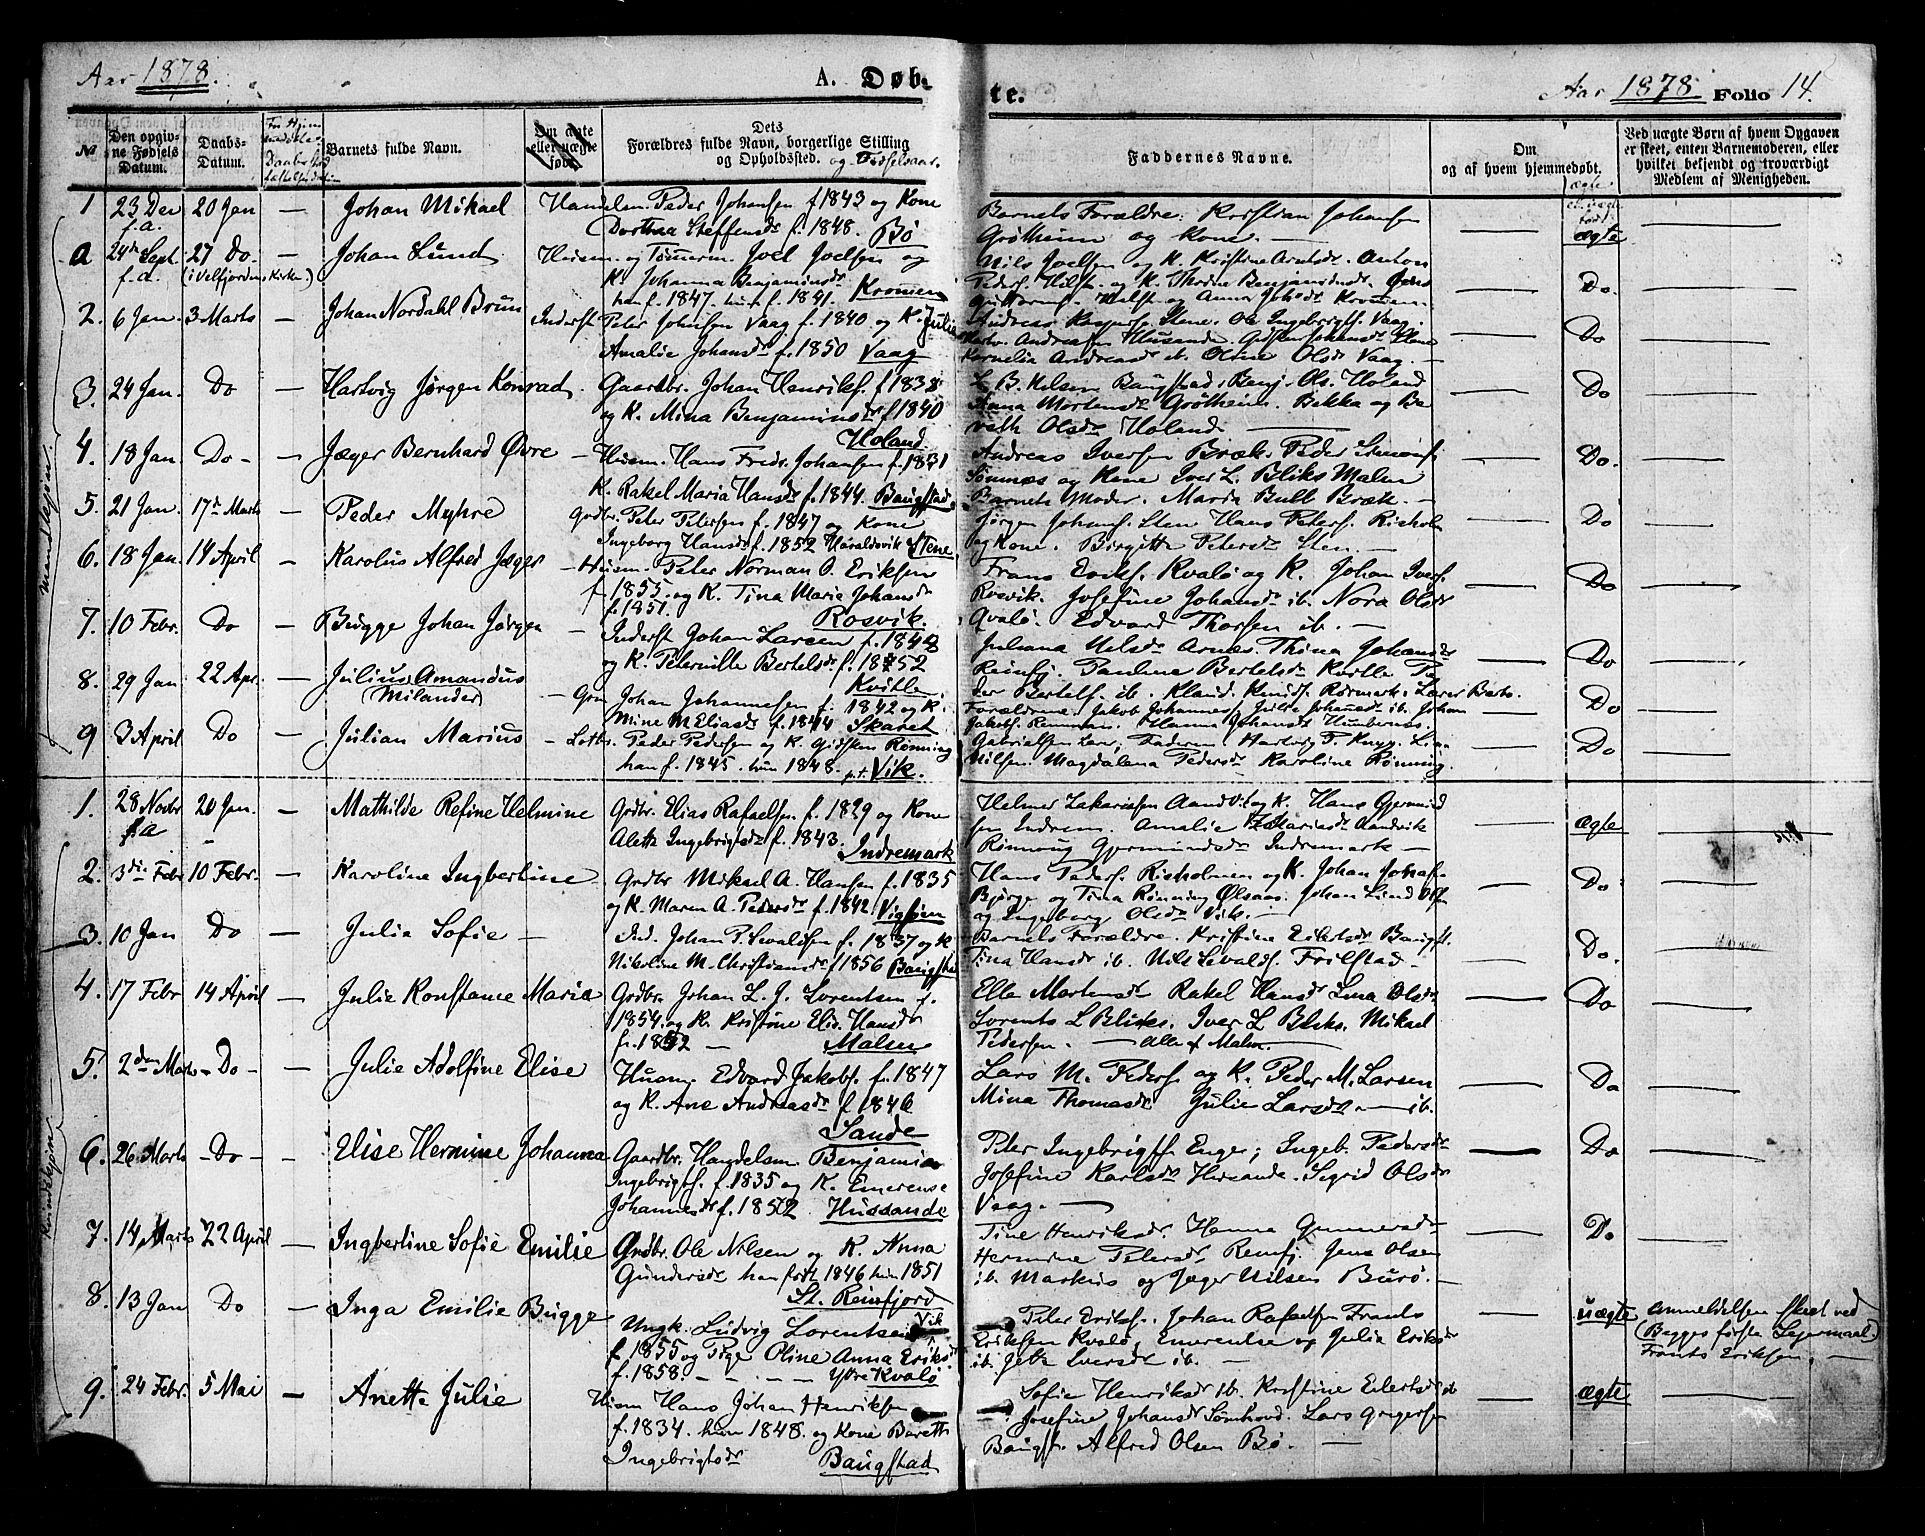 Aar 1878.
A. Døb-
te.
Aar 1878 Folio 14.
№
Den opgiv-
ne Fødsels
Datum.
Daabs-
Datum.
Barnets fulde Navn.
Om ægte
eller uægte
født.
Dets
Forældres fulde Navn, borgerlige Stilling
og Opholdssted. og Fødselsaar.
Faddernes Navne.
Om
og af hvem hjemmedøbt.
ægte
el. uægte
født
Ved uægte Børn af hvem Opgaven
er skeet, enten Barnemoderen, eller
hvilket bekjendt og troværdigt
Medlem af Menigheden.
Mandkjøn.
1 23 Dec f.a. 20 Jan — Johan Mikael
Peder Johansen f. 1843 og Kone
Dorthea Steffensd. f. 1848. Bø
Barnets Forældre. Kristian Johansen
Grøtheim og Kone. —
ægte
a 24de Sept. f.a. 27 Do (i Velfjordens Kirke.) — Johan Lund
Husm. og Tømerm. Joel Joelsen og
K. Johanna Benjaminsd.
han f. 1847. hun f. 1841. Kromen
Nils Joelsen og K. Kristine Arntsd. Anton
Peders. Helst. og K. Benjaminsd. Jens
Helst. og Anna Johsd. Kromen.
Do.
2. 6 Jan. 3 Marts — Johan Nordahl Brun
Inderst Peter Johnsen Vaag f. 1840 og K. Julie
Amalie Johansd. f. 1850 Vaag
Andreas Kaspers. Stene. Ole Ingebrigts. Vaag.
Andreasen Husande. Stene
Kornelia Andreasd. ib. Oline Olsd. Vaag. —
Do
3. 24 Jan. Do — Hartvig Jørgen Konrad
Gaardbr. Johan Henriks. f. 1838
og K. Mina Benjaminsd. f. 1840
Holand
L. B. Nelsen Baugstad. Benj. Ols. Holand
Anna Mortensd. Grøtheim. Bekka og Be-
reth Olsd. Holand
Do
4. 18 Jan Do — Jæger Bernhard Øvre
Husm. Hans Fredr. Johansen f. 1831
K. Rakel Maria Hansd. f. 1844. Baugstad
Andreas Iversen Bræk. Peder Simons.
Sømnæs og Kone Iver L. Bliks Malm
Barnets Moder. Maria Bull Bræk. —
Do.
5. 21 Jan 17de Marts — Peder Myhre
Grdbr. Peter Petersen f. 1847 og Kone
Ingeborg Hansd. f. 1852 Haraldsvik Stene
Jørgen Johans. Sten Hans Peters. Risholm
og Kone. Birgitte Petersd. Sten. —
Do
6. 18 Jan. 14 April — Karolus Alfred Jæger
Husm. Peter Norman O. Eriksen
f. 1855. og K. Tina Marie Johansd.
f. 1851. Rosvik.
Frans Eriks. Kvalø og K. Johan Ivers.
Rosvik. Josefine Johansd. ib. Nora Olsd.
Qvalø. Edvard Thorsen ib. —
Do
7. 10 Febr. Do — Bugge Johan Jørgen
Inderst Johan Larsen f. 1848
og K. Peternille Bertelsd. f. 1852
Kvitle
Juliana Nilsd. Arnes. Thina Johansd.
Reinfj. Pauline Bertelsd. Kvitle Pe-
der Bertels. ib. Klaud. Knuds. Rørmark. Larer Berbs.
Do
8. 29 Jan 22 Apr. — Julius Amandus
(Milander)
Johan Johannessen f. 1842 og K.
Mine M. Eliasd. f. 1844 Skaret
Forældrene. Jakob Johannes. ib. Johan
Jakobs. Hanna Johansd.
Do
9 3 April Do — Julian Marius
Peder Pedersen og K. Gidsken Rønning
han f. 1845. hun 1848. p.t. Vik.
Gabrielsen Faderen. Hartvig F.
Nilsen. Magdalena Pedersd. Karoline Rønning.
Do
Kvindekjøn.
1. 28 Novbr f.a 20 Jan. — Mathilde Refine Helmine
Grdbr. Elias Rafaels. f. 1829 og Kone
Aleth Ingebrigtsd. f. 1843. Indremark
Helmer Zakariasen Aandv. og K. Hans Gjermund
sen Indrem. Amalie Zakariasd. Aandvik
Rønnoug Gjermundsd. Indremark —
ægte
2. 3die Febr 10 Febr. — Karoline Ingbertine
Grdbr Mikael A. Hansen f. 1835
og K. Maren A. Pedersd. f. 1842.
Hans Peders. Risholmen og K. Johan Johans.
Bjørge og Tina Rønning Ølsaas. Johan Lund
og Ingeborg Olsd. Vik. —
Do
3. 10 Jan Do — Julia Sofie —
Ind. Johan P. Sevaldsen f. 1837 og K
Nikoline M. Christiansd. f. 1856 Baugstad
Barnets Forældre. Kristine Eilertsd. Baugst.
Tina Hansd. ib. Nils Sevalds. Frilstad —
Do.
4. 17 Febr 14 April — Julie Konstance Maria
Grdbr. Johan L. J. Lorentsen f.
1854. og K. Kristine Elis. Hansd.
f. 1852 — Malm
Ella Mortensd. Rakel Hansd. Lina Olsd.
Lorents L Bliks. Iver L Bliks. Mikael
Pedersen. — alle af Malm. —
Do
5. 2den Marts Do — Julie Adolfine Elise
Husm. Edvard Jakobs. f. 1847
og K. Ane Andreasd. f. 1846
Sande
Lars M. Peders. og K. Peder M. Larsen
Mina Thomasd. Julie Larsd. — ib.
Do
6. 26 Marts Do — Elise Hermine Johanna
Gaardbr. Handelsm. Benjamin
Ingebrigts. f. 1835 og K. Emerense
Johannesd. f. 1852. Hussande
Peter Ingebrigts. Enger; Ingeb. Pedersd.
Josefine Karlsd. Husande. Sigrid Olsd.
Vaag. —
Do
7. 14 Marts 22 April — Ingbertine Sofie Emilie
Grdbr. Ole Nilsen og K. Anna
Gundersd. han født 1846 hun 1851
St. Reinfjord
Tine Henriksd. Hanna Gunnersd.
Hermine Petersd. Reinfj. Jens Olsen
ib. Markus og Jæger Nilsen Burø. —
Do
8. 13 Jan Do — Inga Emilie Bugge
Ungk. Ludvig Lorentsen Vik
f. 1855 og Pige Oline Anna Eriksd.
f. 1858 — — — Ytre Kvalø
Peter Eriks. Johan Rafaelsen Frants
Eriksen Kvalø, Emerense og Julie Eriksd.
ib. Jette Iversd. ib. —
uægte
Anmeldelsen skeet ved
(Begges første Leiermaal)
Frants Eriksen. —
9. 24 Febr. 5 Mai — Anetta Julie
Husm Hans Johan Henriksen
f. 1834. hun 1848. og Kone Bareth
Ingebrigtsd. Baugstad
Sofie Henriksd. ib. Kristine Eilertsd. ib
Josefine Johansd. Sømhovd. Lars Gregersen
Baugst. Alfred Olsen Bø. —
ægte